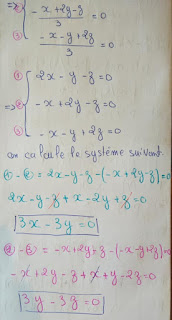 => ② { -x+2y-z/3 = 0
③ -x-y+2z/3 = 0
① { 2x - y - z = 0
=> ② -x + 2y - z = 0
③ - x - y + 2z = 0
on calcule le système suivant
① - ② = 2x - y - z - (-x + 2y - z) = 0
2x - y - z + x - 2y + z = 0
3x - 3y = 0
② - ③ = -x + 2y - z - (-x - y + 2z) = 0
- x + 2y - z + x + y - 2z = 0
3y - 3z = 0